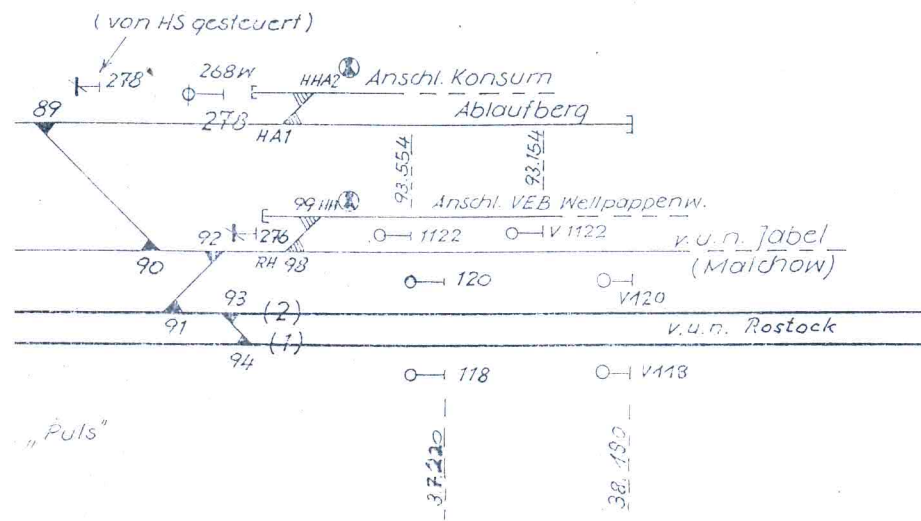 (von HS gesteuert)
278
268W
HHA2
Anschl. Konsum
89
278
HA1
Ablaufberg
93.554
93.154
99
Anschl. VEB Wellpappenw.
92
276
1122
V 1122
v.u.n. Jabel
90
RH 98
(Malchow)
120
V120
93
(2)
91
v.u.n. Rostock
94
(1)
118
V118
„Puls"
37.220
38.190